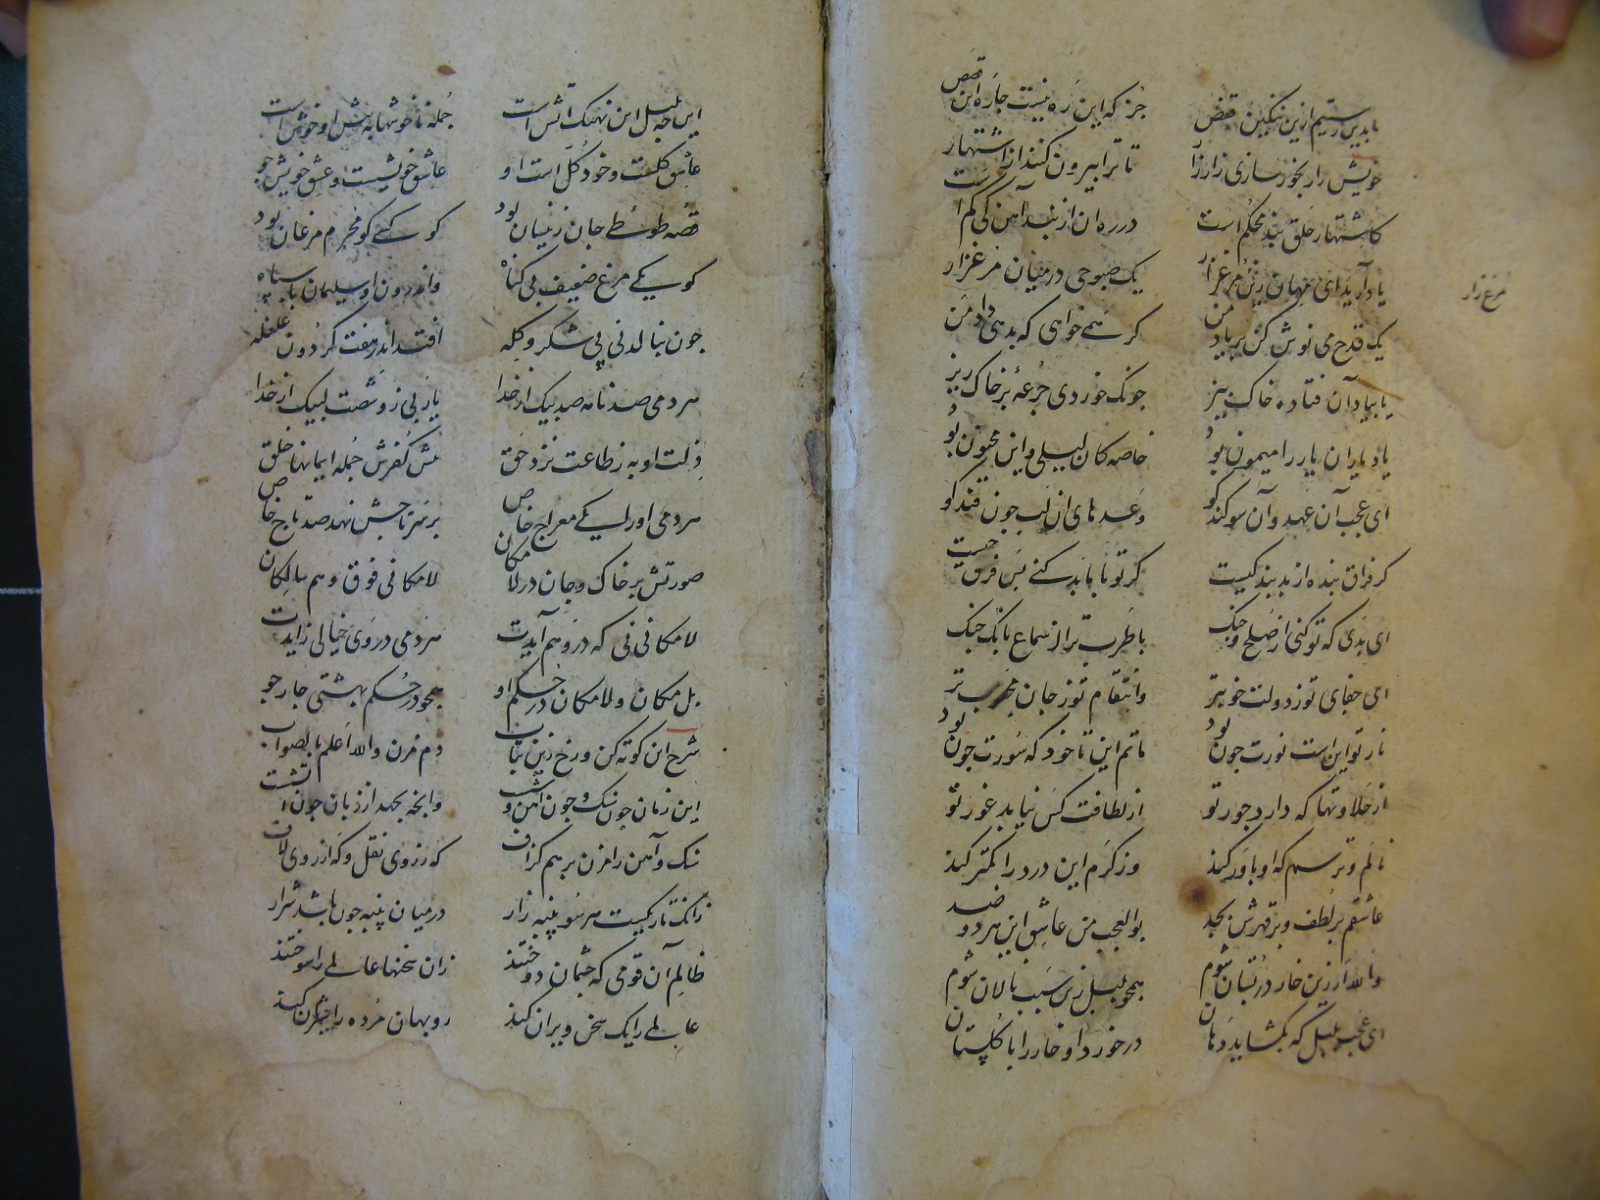 ما بدین رستیم ازین ننکین قفص جز که این ره نیست جاره این قفص
خویش را رنجور سازی زار زار تا ترا بیرون کنند از اشتهار
کاشتهار خلق بند محکم است در ره ان از بند آهن کی کم است
یاد آرید ای مهان زین مرغزار یک صبوحی درمیان مرغزار
مرغ زار
یک قدح می نوش کن بر یاد من کر همی خواهی که بدهی داد من
یا بیاد آن فتاده خاک بیز جونک خوردی جرعهٔ بر خاک ریز
یاد یاران یار را میمون بود خاصه کان لیلی و این مجنون بود
ای عجب آن عهد و آن سوکند کو وعدهای ان لب جون قند کو
کر فراق بنده از بد بندکیست کر تو با بد بد کنی بس فرق جیست
ای بدی که تو کنی از صلح و جنک با طرب تر از سماع بانک جنک
ای جفای تو ز دولت خوبتر وانتقام تو ز جان محبوب تر
نار تو این است نورت جون بود ماتم این تا خود که سورت جون بود
از حلاوتها که دارد جور تو از لطافت کس نیابد غور تو
نالم و ترسم که او باور کند وز کرم این درد را کمتر کند
عاشقم بر لطف و بر قهرش بجد بوالعجب من عاشق این هر دو ضد
والله ار زین خار در بستان شوم همجو بلبل زین سبب نالان شوم
ای عجب بلبل که بکشاید دهان در خورد او خار را با کلستان
این جه بلبل این نهنک آتش است جمله ناخوشها به پیش او خوش است
عاشق کلست و خود کل است او عاشق خویشست و عشق خویش جو
قصه طوطی جان زینسان بود کو کسی کو محرم مرغان بود
کو یکی مرغ ضعیف بی کناه و اندرون او سلیمان با سپاه
جون بنالد نی پی شکر و کله افتد اندر هفت کردون غلغله
هر دمی صد نامه صد پیک از خدا یار بی زو شصت لبیک از خدا
ذلت او به ز طاعت نزد حق پیش کفرش جمله ایمانها خلق
هر دمی او را یکی معراج خاص بر سر تاجش نهد صد تاج خاص
صورتش بر خاک و جان در لا مکان لامکانی فوق وهم سالکان
لامکانی نی که در وهم آیدت هر دمی در وی خیالی زایدت
بل مکان و لامکان در حکم او همجو در حکم بهشتی جار جو
شرح این کوته کن و رخ زین بتاب دم مزن والله اعلم بالصواب
این زبان جون سنک و جون آهن وش است وانجه بجهد از زبان جون آتشست
سنک و آهن را مزن بر هم کزاف که ز روی نقل و که از روی لاف
زانک تاریکیست هر سو پنبه زار درمیان پنبه جون باشد شرار
ظالم آن قومی که جشمان دوختند زان سخنها عالمی را سوختند
عالمی را یک سخن ویران کند روبهان مرده را شیران کند